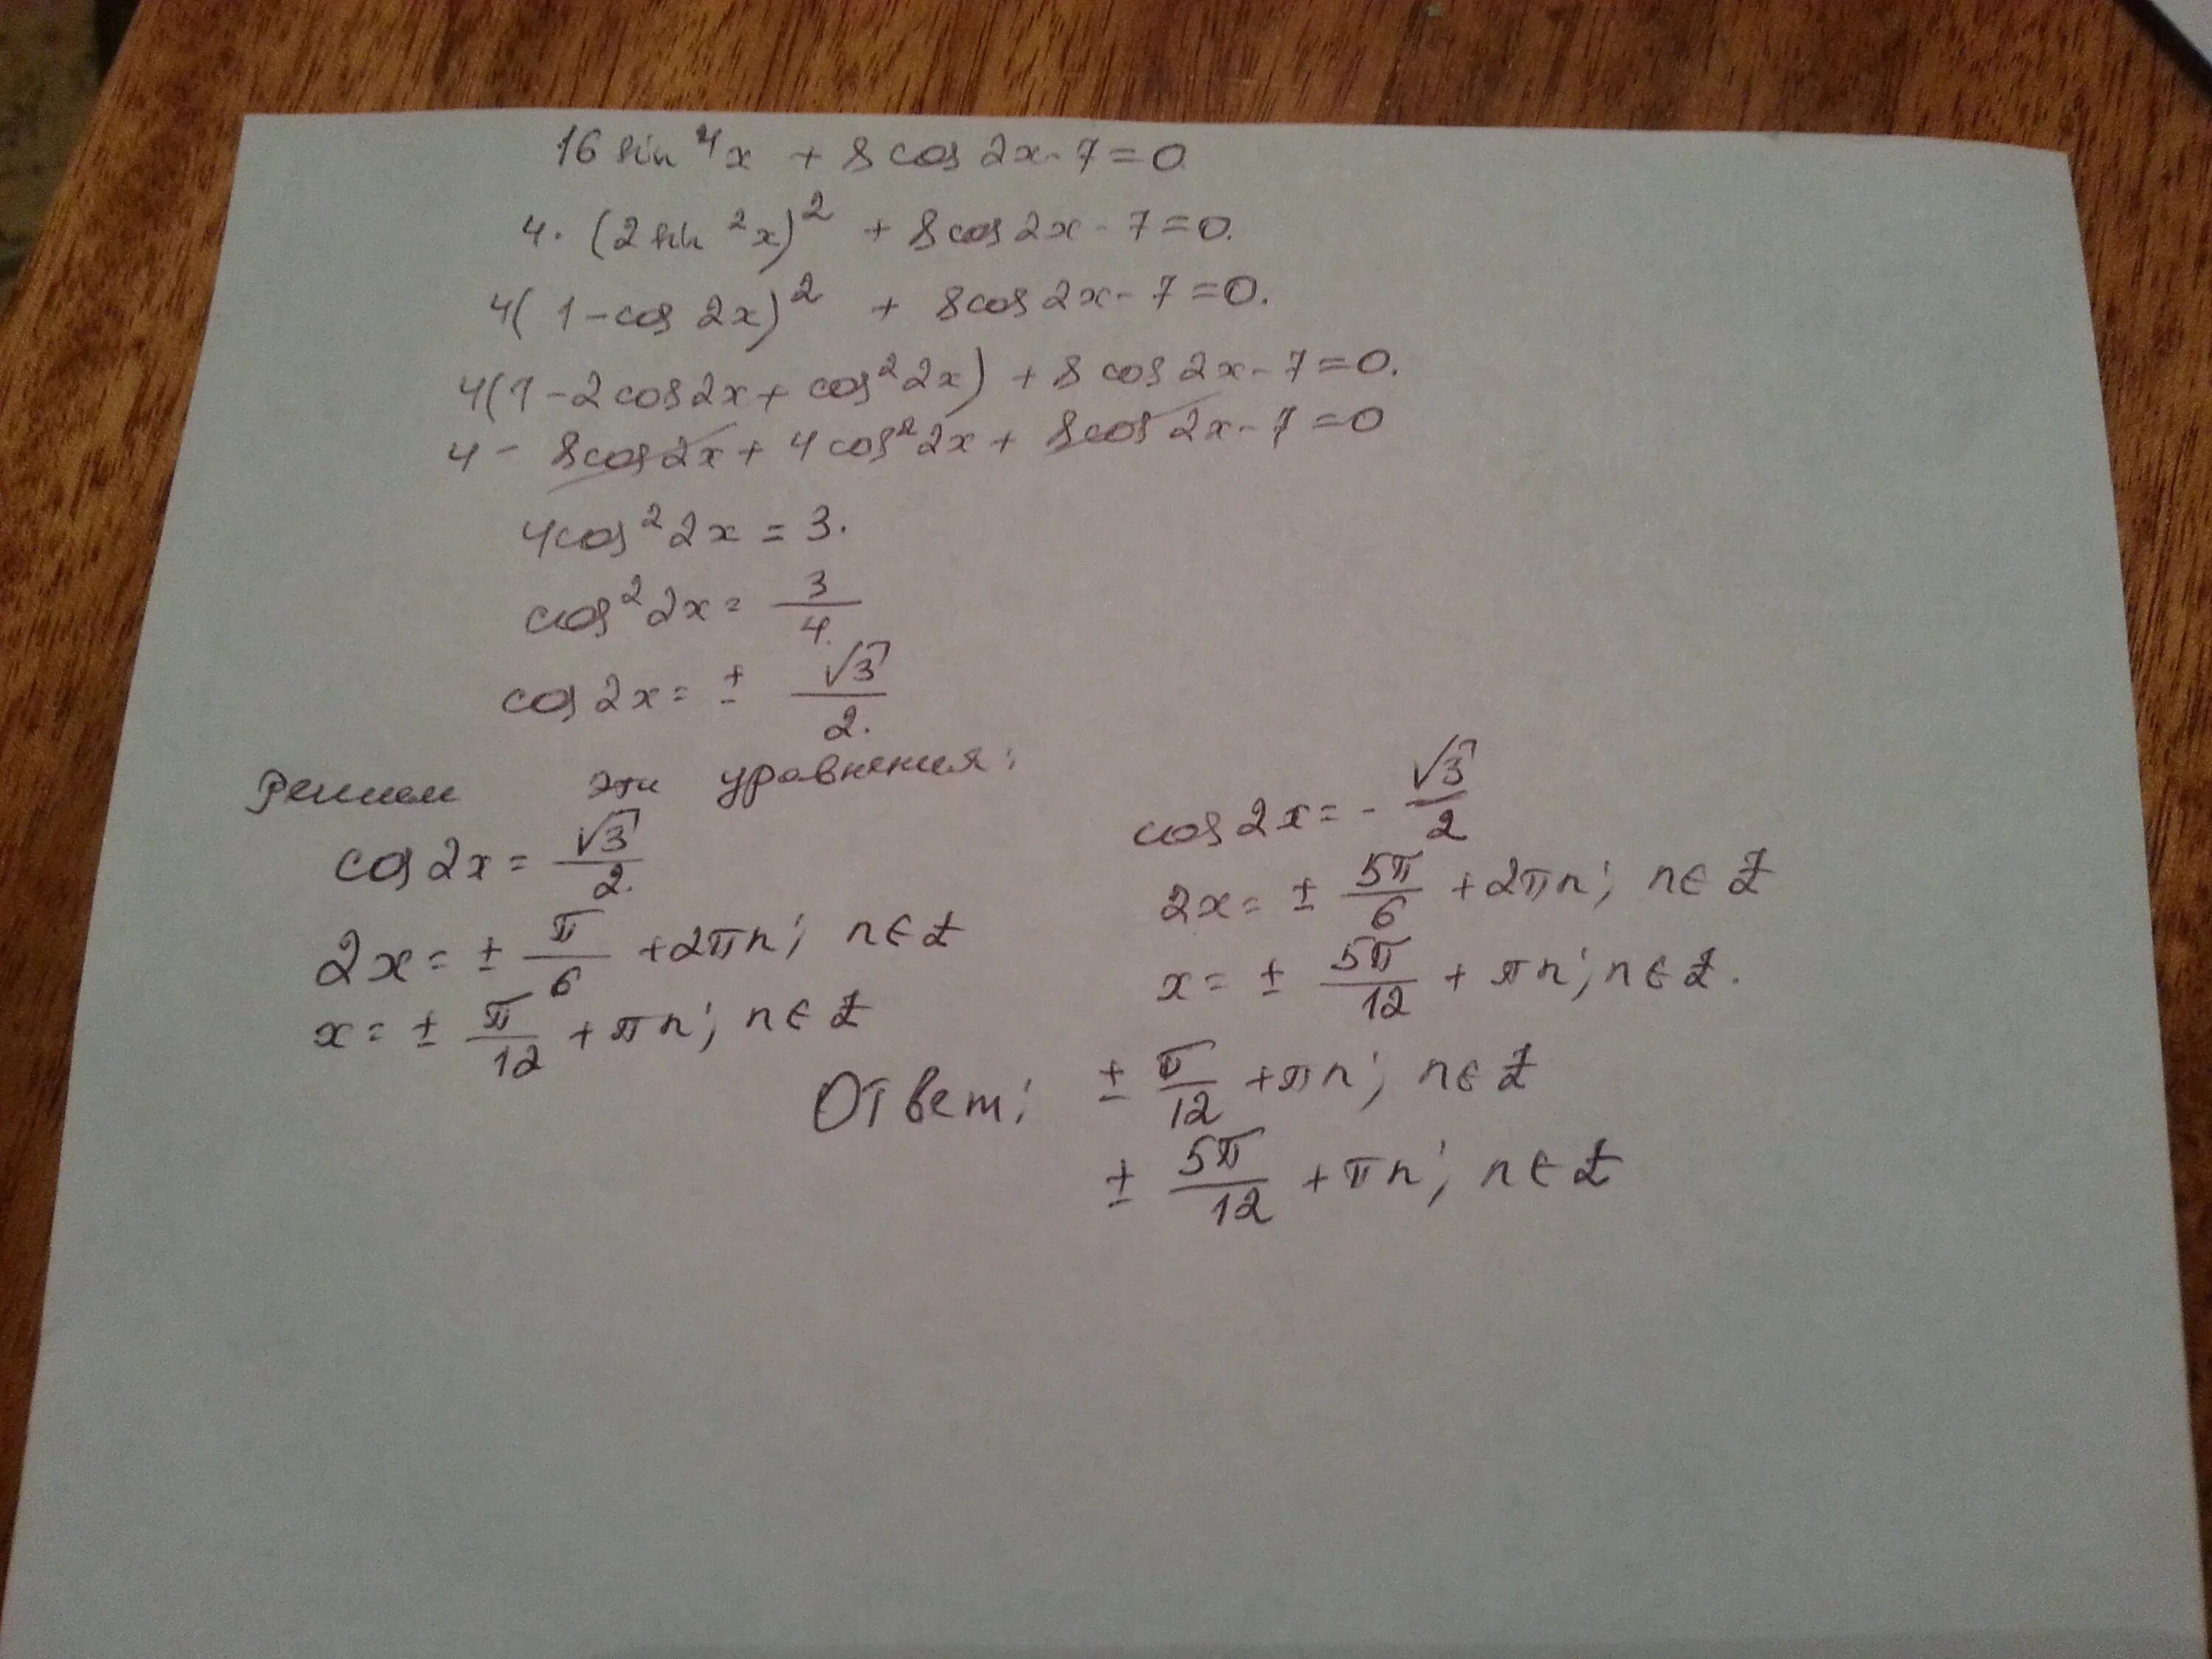 16 sin⁴x + 8cos 2x - 7 = 0
4·(2 sin²x)² + 8cos2x - 7 = 0.
4(1 - cos 2x)² + 8cos 2x - 7 = 0.
4(1 - 2cos2x + cos²2x) + 8 cos 2x - 7 = 0.
4 - 8cos2x + 4cos²2x + 8cos 2x - 7 = 0
4cos²2x = 3.
cos²2x = 3/4.
cos 2x = ± √3/2.
Решим эти уравнения:
cos 2x = √3/2.
2x = ± π/6 + 2πn; n ∈ Z
x = ± π/12 + πn; n ∈ Z
cos 2x = - √3/2
2x = ± 5π/6 + 2πn; n ∈ Z
x = ± 5π/12 + πn; n ∈ Z.
Ответ: ± π/12 + πn; n ∈ Z
± 5π/12 + πn; n ∈ Z